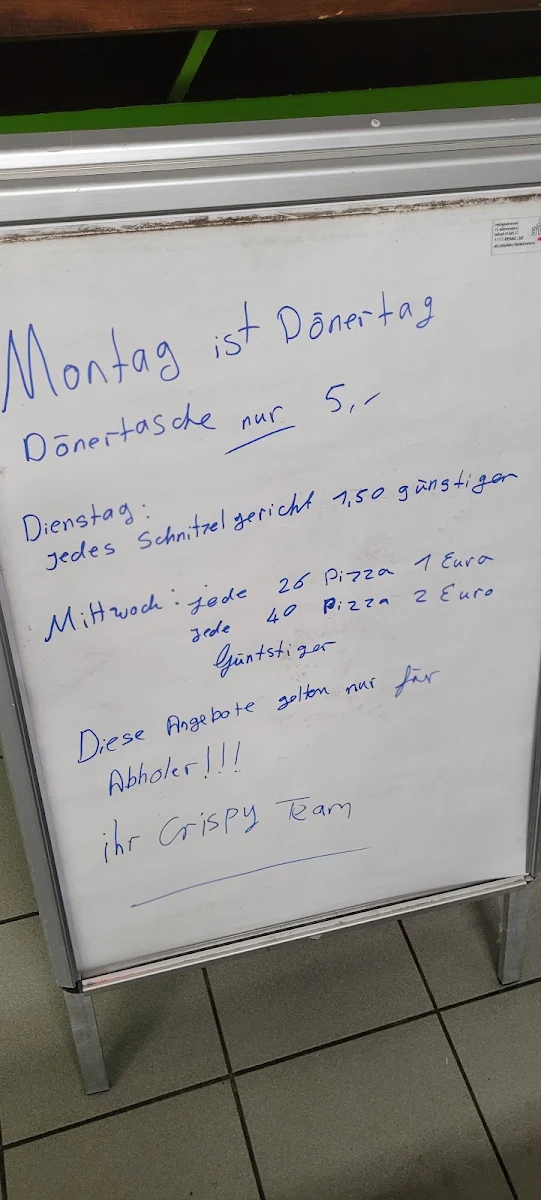 Montag ist Dönertag
Dönertasche nur 5,-
Dienstag:
jedes Schnitzelgericht 1,50 günstiger
Mittwoch: jede 26 Pizza 1 Euro
jede 40 Pizza 2 Euro
Güntstiger
Diese Angebote gelten nur für
Abholer!!!
ihr Crispy Team